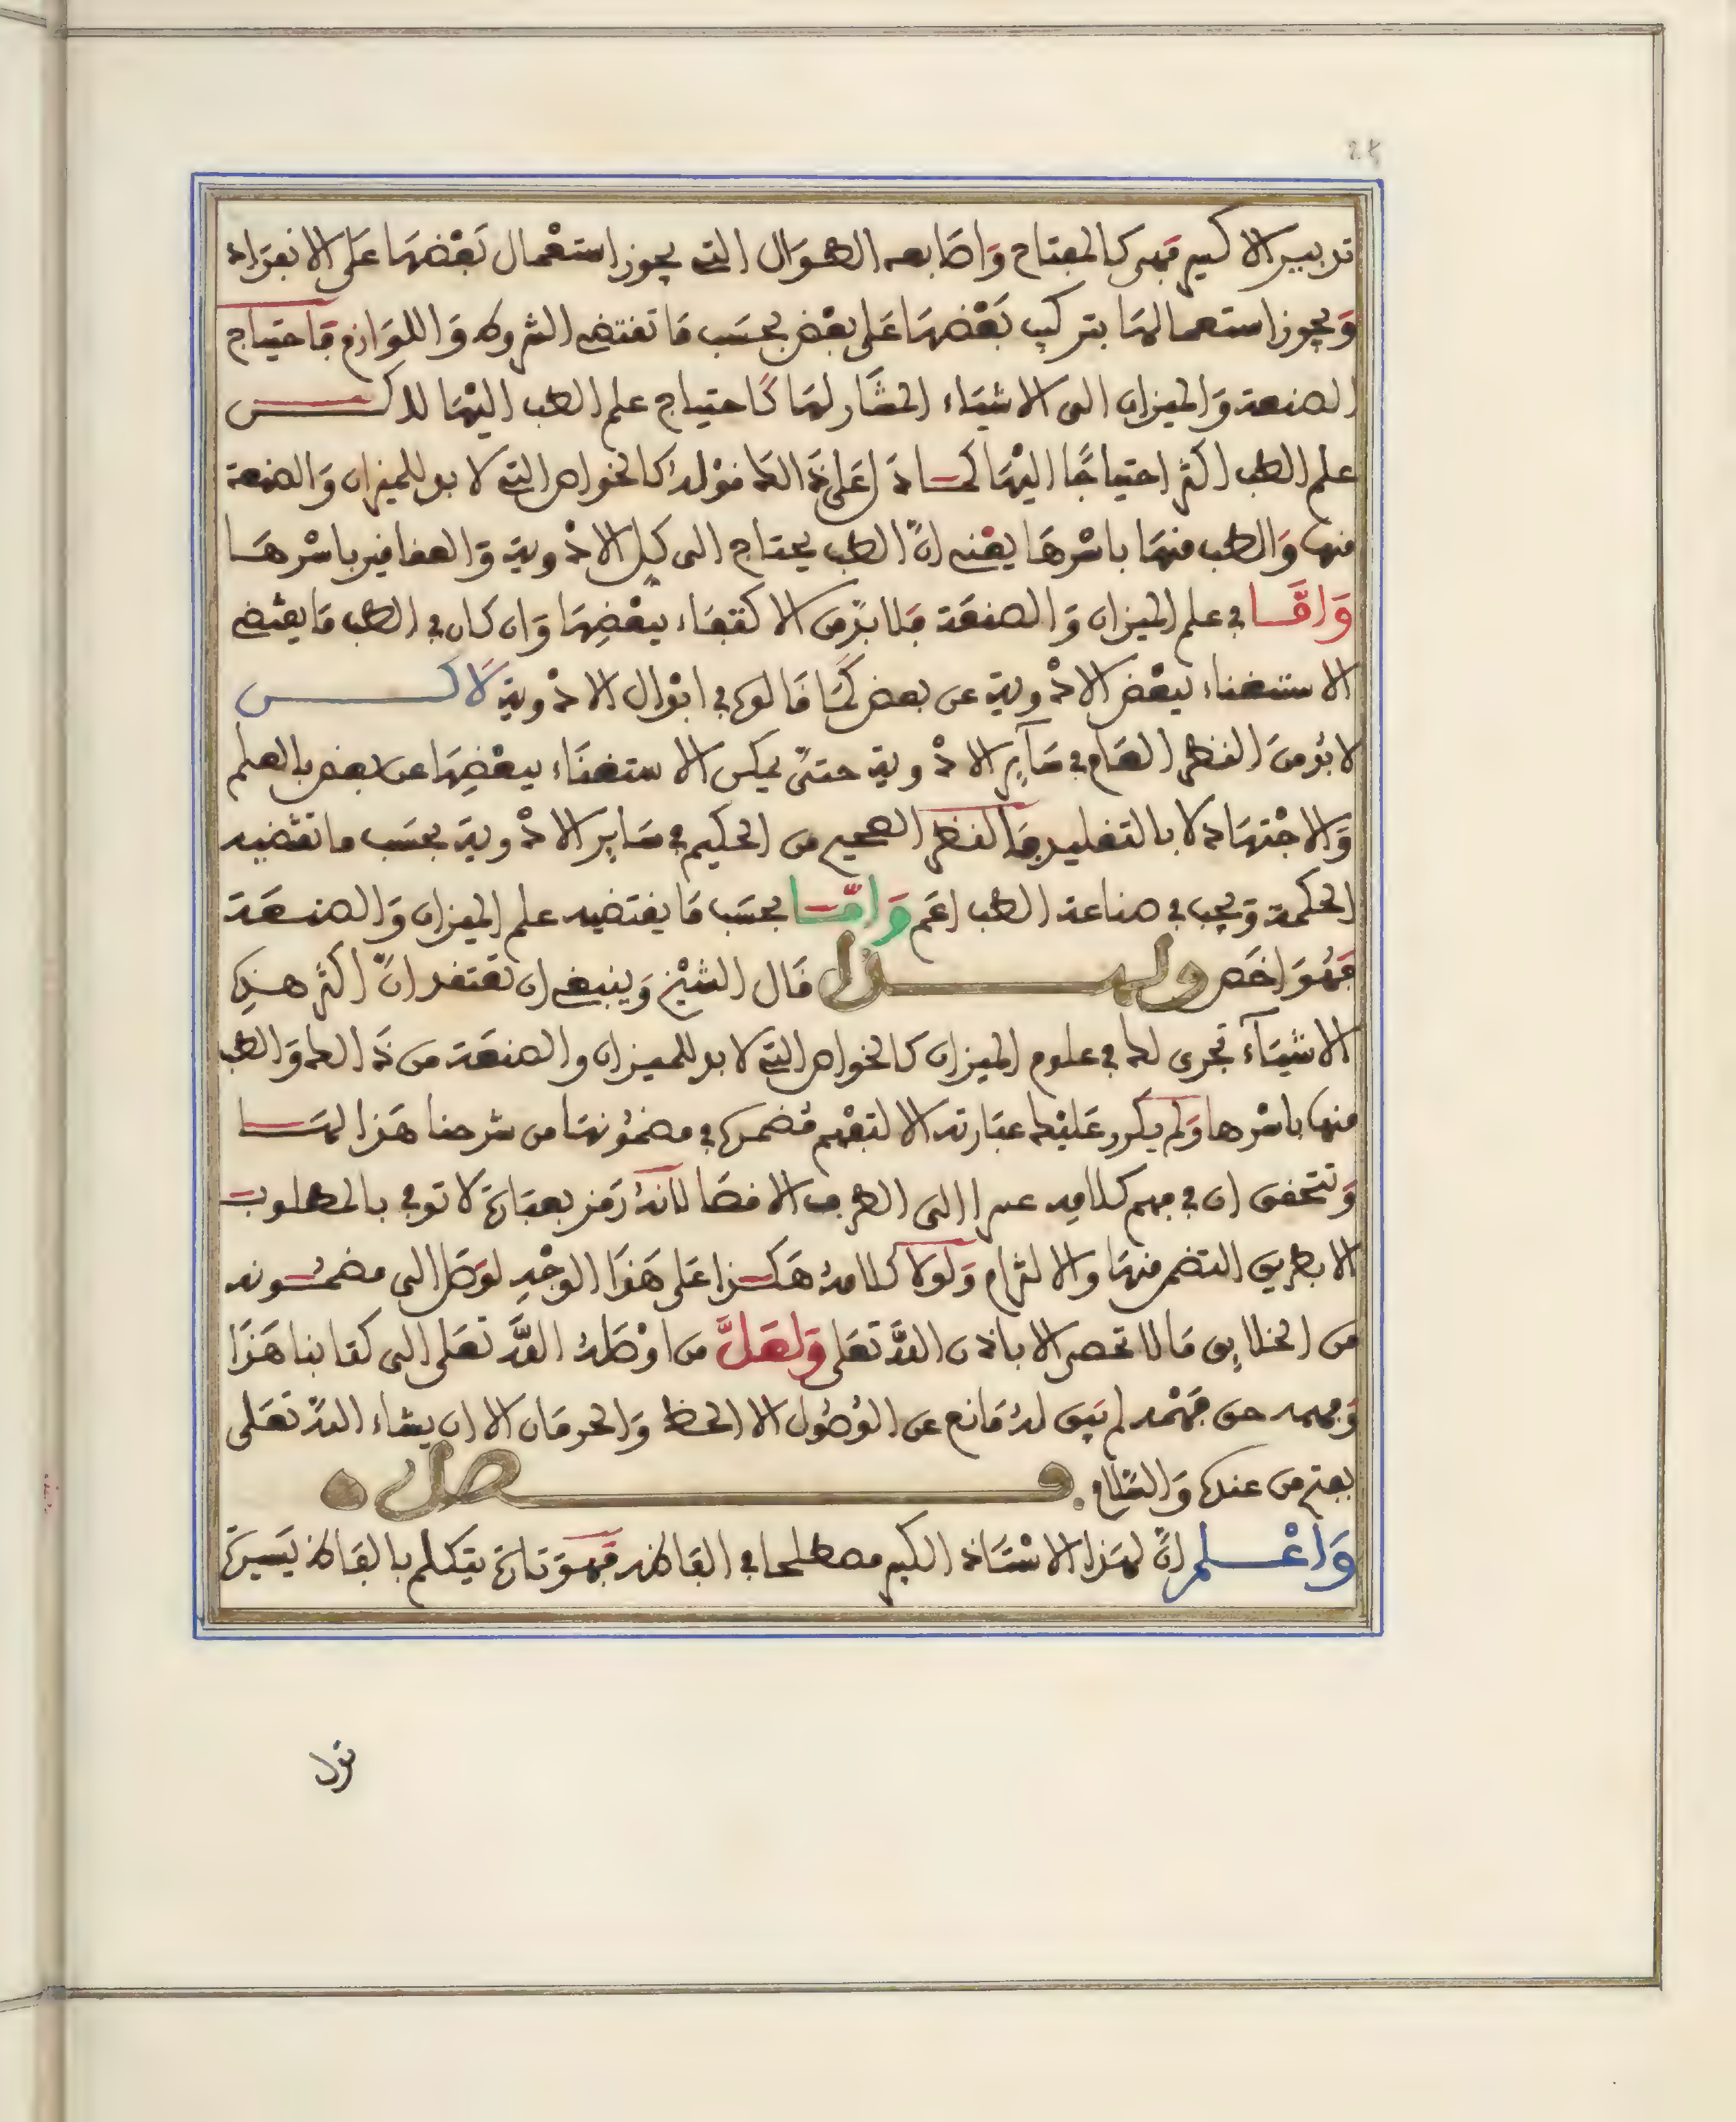 تدبير الاكسير فهى كالمفتاح وَاصَابعه الطوَال التى يجوز استعْمال بَعْضهَا عَلى الانفرَاد
وَيجوز استعمالهَا بتركيب بَعْضهَا عَلى بعْض بحسَب مَا تقتضى الشروط وَاللوَازم فَاحتياج
الصنعة وَالميزان الى الاشيَاء المشَار لهَا كَاحتياج علم الطب اليْهَا لاكن
علم الطب اكثر احتياجًا اليْهَا كما دَل عَلى ذَالك قوْله كالخواص التى لا بد للميزان وَالصنعة
منها وَالطب منهَا باسْرهَا يعْنى انَّ الطب يحتاج الى كل الادْوية وَالعقاقير باسْرهَا
وَامَّا في علم الميزان وَالصنعَة فلا بدّ من الاكتفَاء ببعْضِهَا وَان كان في الطب مَا يقتضى
الاستغناء ببعْض الادْوية عن بعض كمَا قالوه في ابْدال الادْوية لَاكن
لا بُد منَ النظر العَام في سَآير الادْوية حتىَّ يمكن الاستغنَاء ببعْضِهَا عن بعض بالعلم
وَالاجْتهَاد لا بالتقليد فَالنظر الصحيح من الحكيم في سَاير الادْوية بحسَب ما تقتضيه
الحكمة وَيجب في صناعة الطب اعَم وَامَّا بحسَب مَا يقتضيه علم الميزان وَالصنعَة
فهُوَ اخَص ولهذا قال الشيْخ وَينبغى ان تعْتقد انَّ اكثر هذه
الاشيَآء تجرى لك في علوم الميزان كالخواص التى لا بد للميزان والصنعَة من ذَالك وَالطب
منها باسْرها وَلم يكرر عَليْك عبَارته الا لتفهم مُضمره في مضمُونهَا من شرحنا هَذا لهَا
وَتتحقق ان في فهم كلامِه عسرا الى الطرف الاقصَا لانهُ رَمز بعبَارَة لا توفى بالمطلوب
الا بطريق التضمن منهَا والالتزام وَلوْلا كلامهُ هَكذا عَلى هَذَا الوجْهِ لوَصَل الى مضمُونه
من الخلايِق مَا لا تحصر الا باذن اللهَّ تعَلى وَلعَلَّ من اوْصَلهُ اللهَّ تعَلى الى كتابنا هَذَا
وَفهمه حق فهْمه لم يَبق لهُ مَانع عن الوُصُول الا الحظ وَالحرمَان الا ان يشاء اللهّ تعَلى
بفتح من عنده وَالسَّلام فصل
وَاعْلم انَّ لهَذا الاسْتَاذ الكبير مصطلحا في القاظه فهوَ تارَة يتكلم بالفاظ يَسيرَة